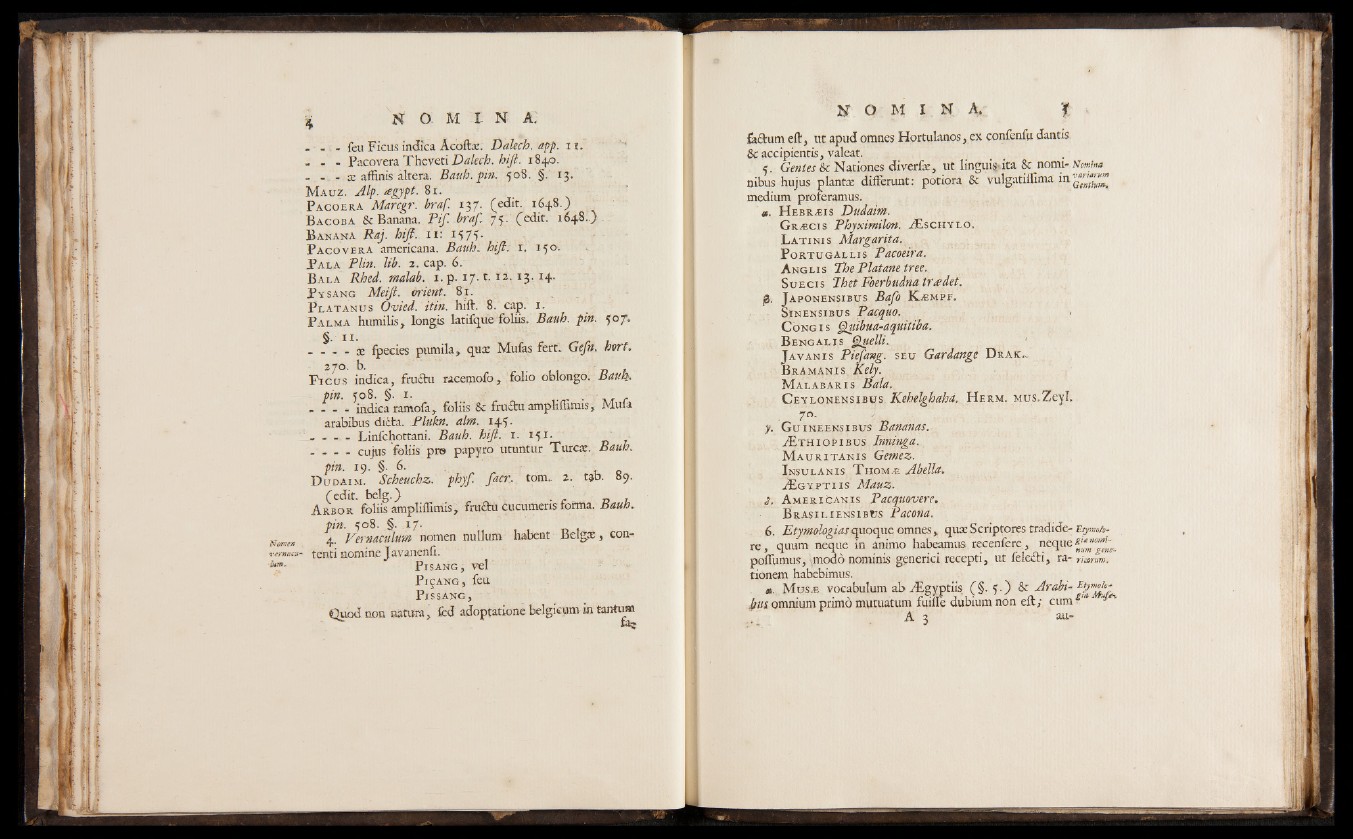 4 NOMINA.
- - - ſeu Ficus indica Acoſtæ. Dalech. app. 11.
- - - Pacovera Theveti Dalech. hiſt. 1840.
- - - æ affinis altera. Bauh. pin. 508. §. 13.
MAUZ. Alp. ægypt. 81.
PACOERA Marcgr. braſ. 137. (edit. 1648.)
BACOBA & Banana. Piſ. braſ. 75. (edit. 1648.)
BANANA Raj. hiſt. 11: 1575.
PACOVERA americana. Bauh. hiſt. 1. 150.
PALA Plin. lib. 2. cap. 6.
BALA Rhed. malab. 1. p. 17. t. 12. 13. 14.
PYSANG Meiſt. orient. 81.
PLATANUS Ovied. itin. hiſt. 8. cap. 1.
PALMA humilis, longis latiſque foliis. Bauh. pin. 507.
§. 11.
- - - - æ ſpecies pumila, quæ Muſas fert. Geſn. hort.
270. b.
FICUS indica, fructu racemoſo, folio oblongo. Bauh.
pin. 508. §. 1.
- - - - indica ramoſa, foliis & fructu ampliſſimis, Muſa
arabibus dicta. Plukn. alm. 145.
- - - - Linſchottani. Bauh. hiſt. 1. 151.
- - - - cujus foliis pro papyro utuntur Turcæ. Bauh.
pin. 19. §. 6.
DUDAIM. Scheuchz. phyſ. ſacr. tom. 2. tab. 89.
(edit. belg.)
ARBOR foliis ampliſſimis, fructu cucumeris forma. Bauh.
pin. 508. §. 17.
Nomen vernacu-lum.
4. Vernaculum nomen nullum habent Belgæ, con-
tenti nomine Javanenſi.
PISANG, vel
PIÇANG, ſeu
PISSANG,
Quod non natura, ſed adoptatione belgicum in tantum
fa-
NOMINA. 5
factum eſt, ut apud omnes Hortulanos, ex conſenſu dantis
& accipientis, valeat.
5. Gentes & Nationes diverſæ, ut linguis, ita & nomi-
Nomina variarum Gentium.
nibus hujus plantæ differunt: potiora & vulgatiſſima in
medium proferamus.
α. HEBRÆIS Dudaim.
GRÆCIS Phyximilon. ÆSCHYLO.
LATINIS Margarita.
PORTUGALLIS Pacoeira.
ANGLIS The Platane tree.
SUECIS Thet Foerbudna trædet.
β. JAPONENSIBUS Baſo KÆMPF.
SINENSIBUS Pacquo.
CONGIS Quibua-aquitiba.
BENGALIS Quelli.
JAVANIS Pieſang. SEU Gardange DRAK.
BRAMANIS Kely.
MALABARIS Bala.
CEYLONENSIBUS Kehelghaha. HERM. MUS. Zeyl.
70.
γ. GUINEENSIBUS Bananas.
ÆTHIOPIBUS Inninga.
MAURITANIS Gemez.
INSULANIS THOMÆ Abella.
ÆGYPTIIS Mauz.
δ. AMERICANIS Pacquovere.
BRASILIENSIBUS Pacona.
6. Etymologias quoque omnes, quæ Scriptores tradide-
Etymolo-giæ nomi-num gene-ricorum.
re, quum neque in animo habeamus recenſere, neque
poſſumus, modò nominis generici recepti, ut ſelecti, ra-
tionem habebimus.
α. MUSÆ vocabulum ab Ægyptiis (§. 5.) & Arabi-
Etymolo-gia Muſæ.
bus omnium primò mutuatum fuiſſe dubium non eſt; cum
A 3 au-